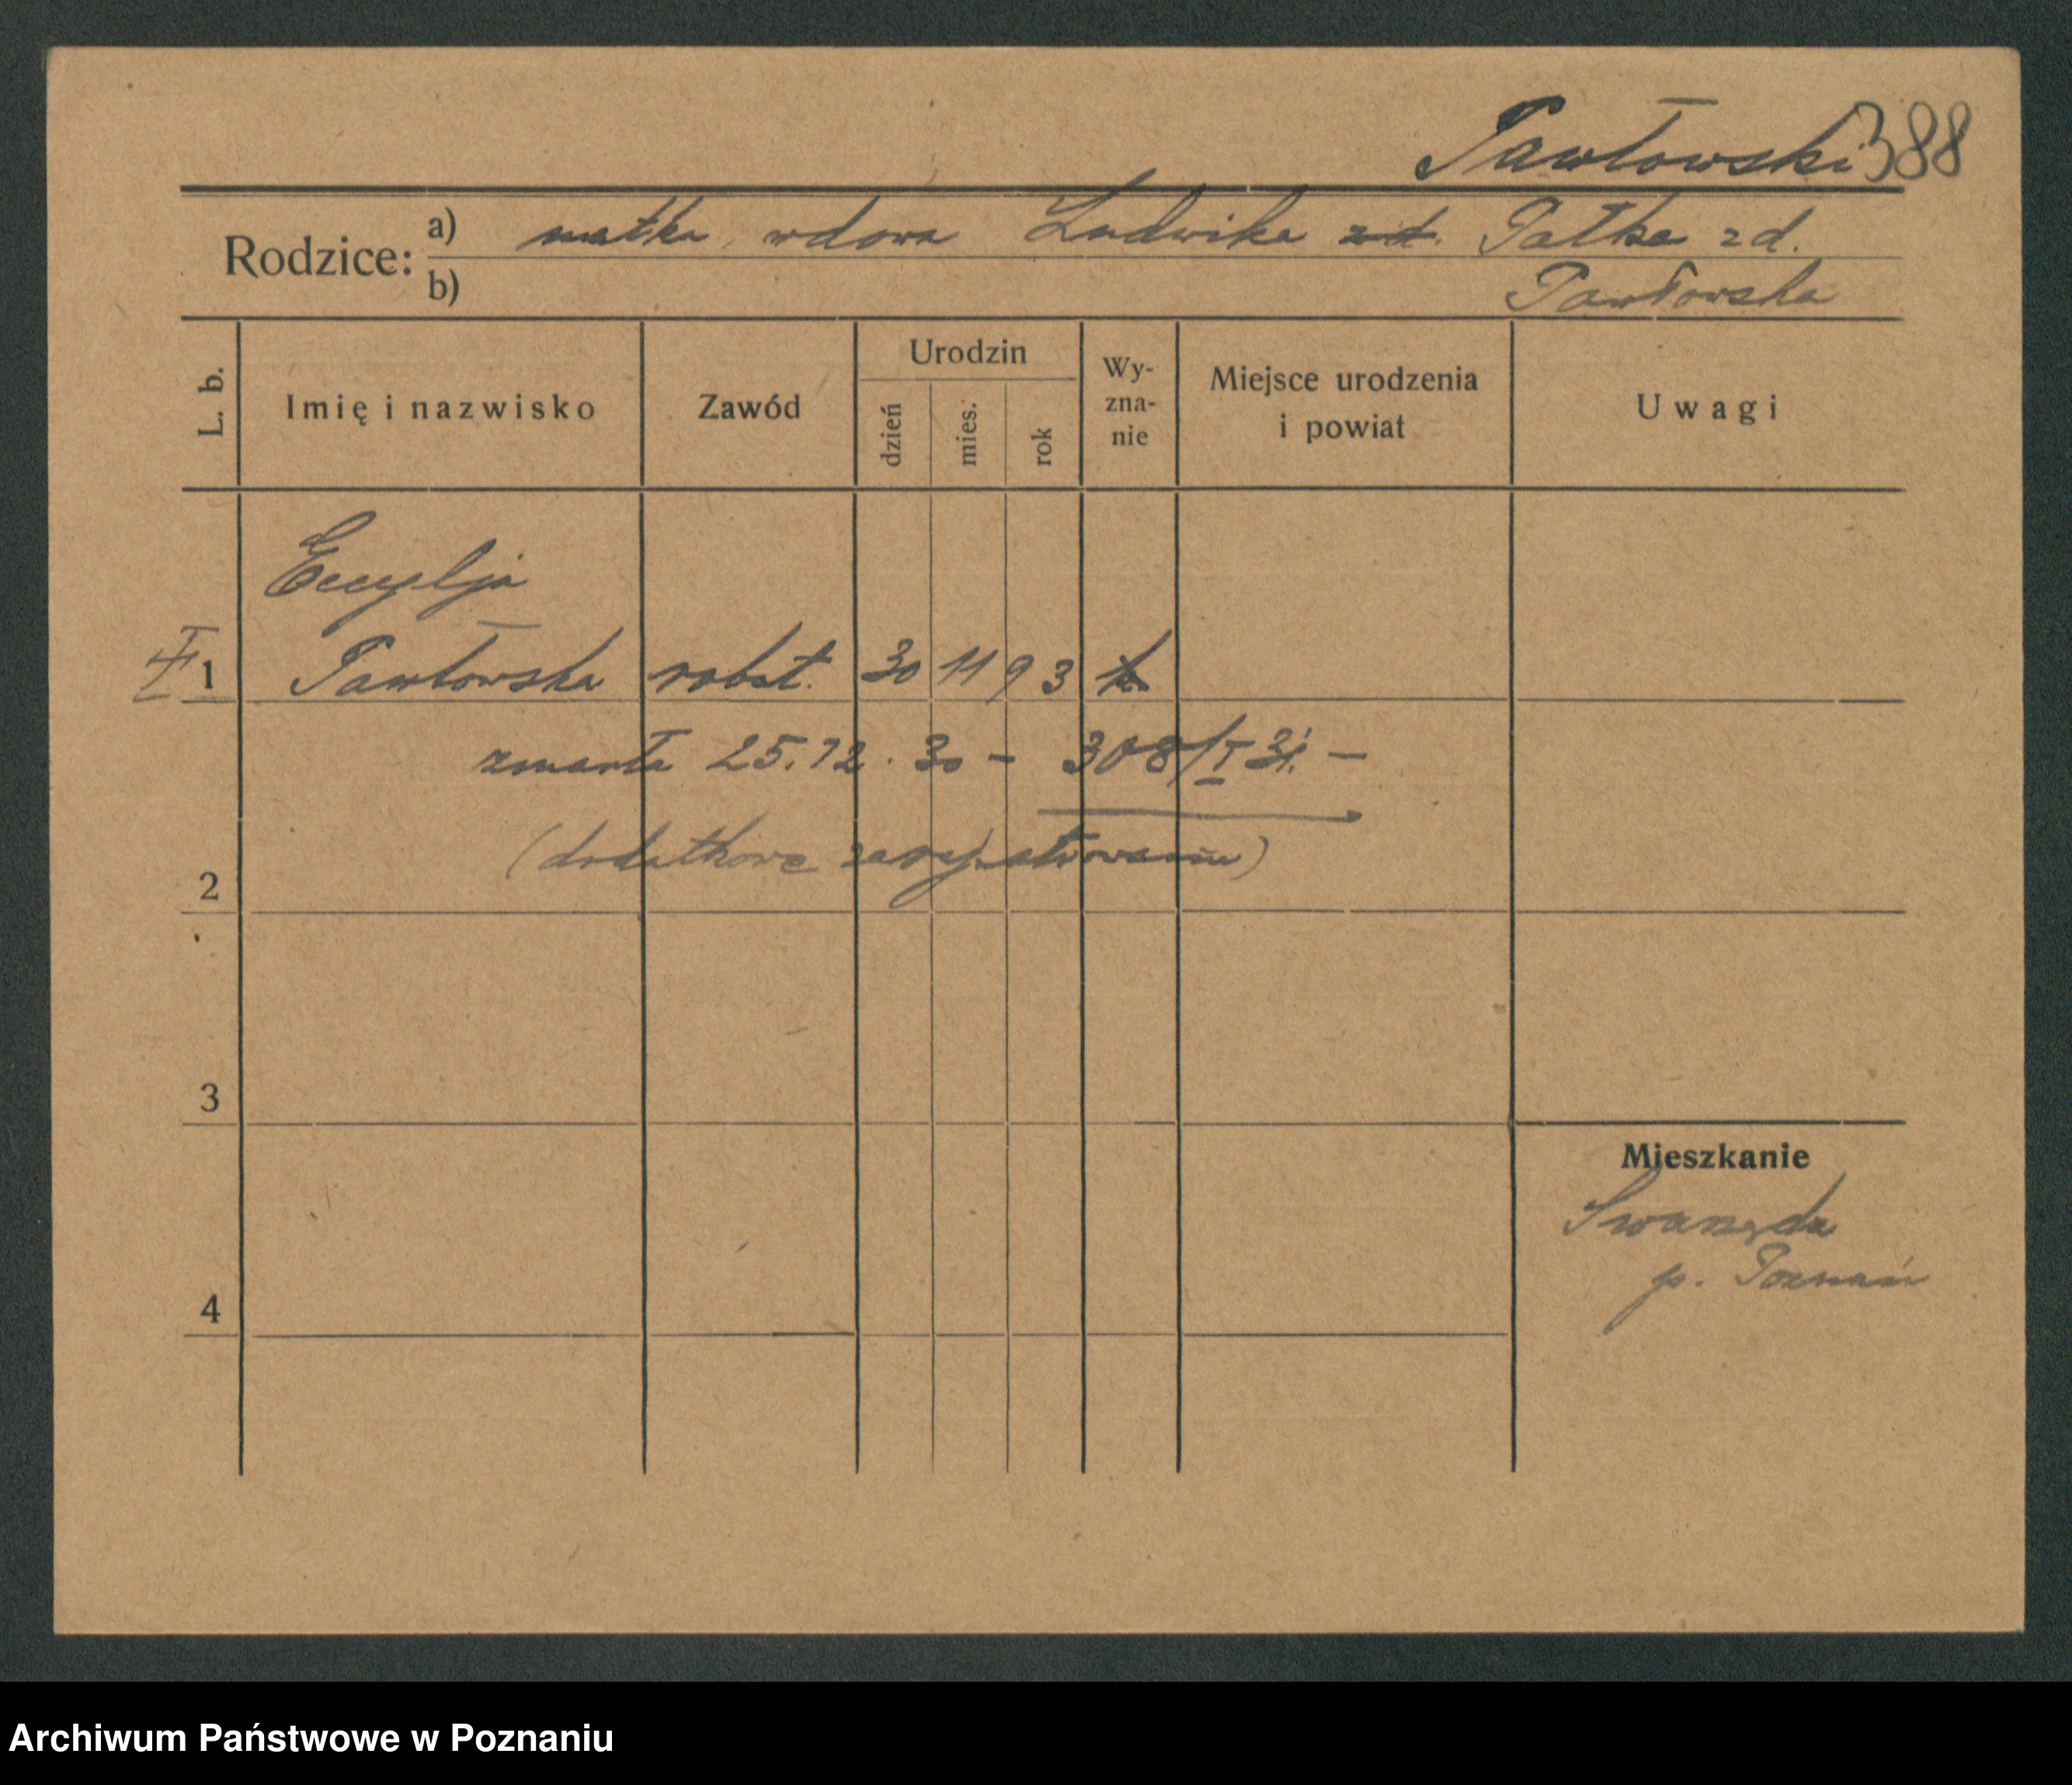 Pawłowski 388
Rodzice: a) matka wdowa Ludwika zd. Pałka zd.
b) Pawłowska
L. b. Imię i nazwisko Zawód Urodzin dzień mies. rok Wy-zna-nie Miejsce urodzenia i powiat Uwagi
Cecylja
1 Pawłowska robot. 30 11 93 k
zmarła 25.12.30 – 308/I 31. –
2 (dodatkowe zarejestrowanie)
3
Mieszkanie
Swarzędz
p. Poznań
4
Archiwum Państwowe w Poznaniu